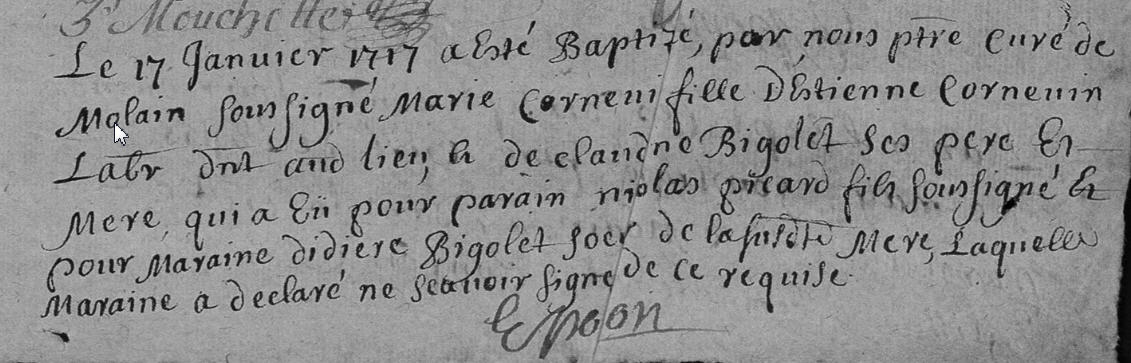 3ᵉ Mouchette
Le 17 Januier 1717 a Esté Baptizé, par nous ptre Curé de
Malain soussigné Marie Corneui fille DEstienne Corneuin
Labr dmt aud lien, & de claudne Bigolet ses pere Et
Mere, qui a Eü pour parain nicolas picard fils soussigné &
pour Maraine didiere Bigolet soer de la susdte Mere, Laquelle
Maraine a declaré ne scauoir signe de ce requise.